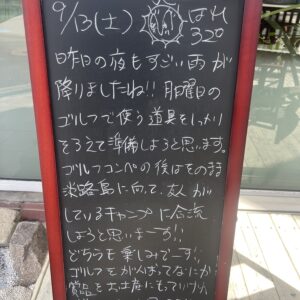 9/13(土) はれ 32°
昨日の夜もすごい雨が
降りましたね!! 月曜日の
ゴルフで使う道具をしっかり
そろえて準備しようと思います。
ゴルフコンペの後はそのまま
淡路島に向って、友人が
しているキャンプに合流
しようと思いまーす!!
どちらも楽しみでーす!!
ゴルフをがんばってなにか
賞品をお土産にもっていけ